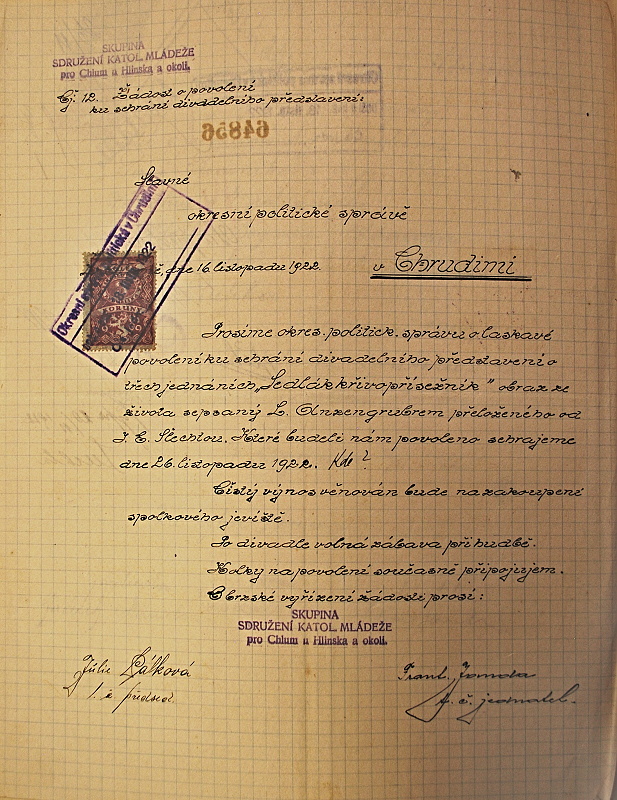 SKUPINA
SDRUŽENÍ KATOL. MLÁDEŽE
pro Chlum u Hlinska a okolí.
Čj. 12. Žádost o povolení
ku sehrání divadelního představení:
64856
Slavné
okresní politické správě
dne 16. listopadu 1922.
v Chrudimi
Prosíme okres. politick. správu o laskavé
povolení ku sehrání divadelního představení o
třech jednáních „Sedlák křivopřísežník" obraz ze
života sepsaný L. Anzengrubrem přeloženého od
J. E. Šlechtou. Které budeli nám povoleno sehrajeme
dne 26. listopadu 1922. Kde?
Čistý výnos věnován bude na zakoupení
spolkového jeviště.
Po divadle volná zábava při hudbě.
Kolky na povolení současně připojujem.
Obrzské vyřízení žádosti prosí:
SKUPINA
SDRUŽENÍ KATOL. MLÁDEŽE
pro Chlum u Hlinska a okolí.
Julie
předsed.
Frant. Janda
t. č. jednatel.